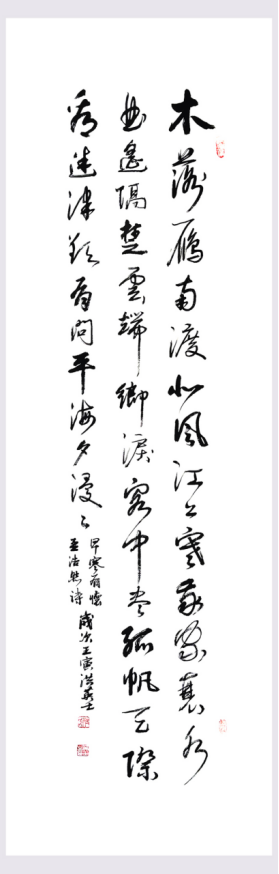 木落雁南渡北風江上寒我家襄水
曲遙隔楚雲端鄉淚客中盡孤帆天際
看迷津欲有問平海夕漫〻
早寒有懷
孟浩然詩
歲次壬寅洪